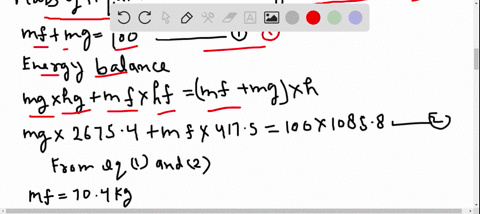 mf + mg = 100 ——— ①①
Energy balance
mg × hg + mf × hf = (mf + mg) × h
mg × 2675.4 + mf × 417.5 = 100 × 1085.8 —— ②
From eq (1) and (2)
mf = 70.4 kg